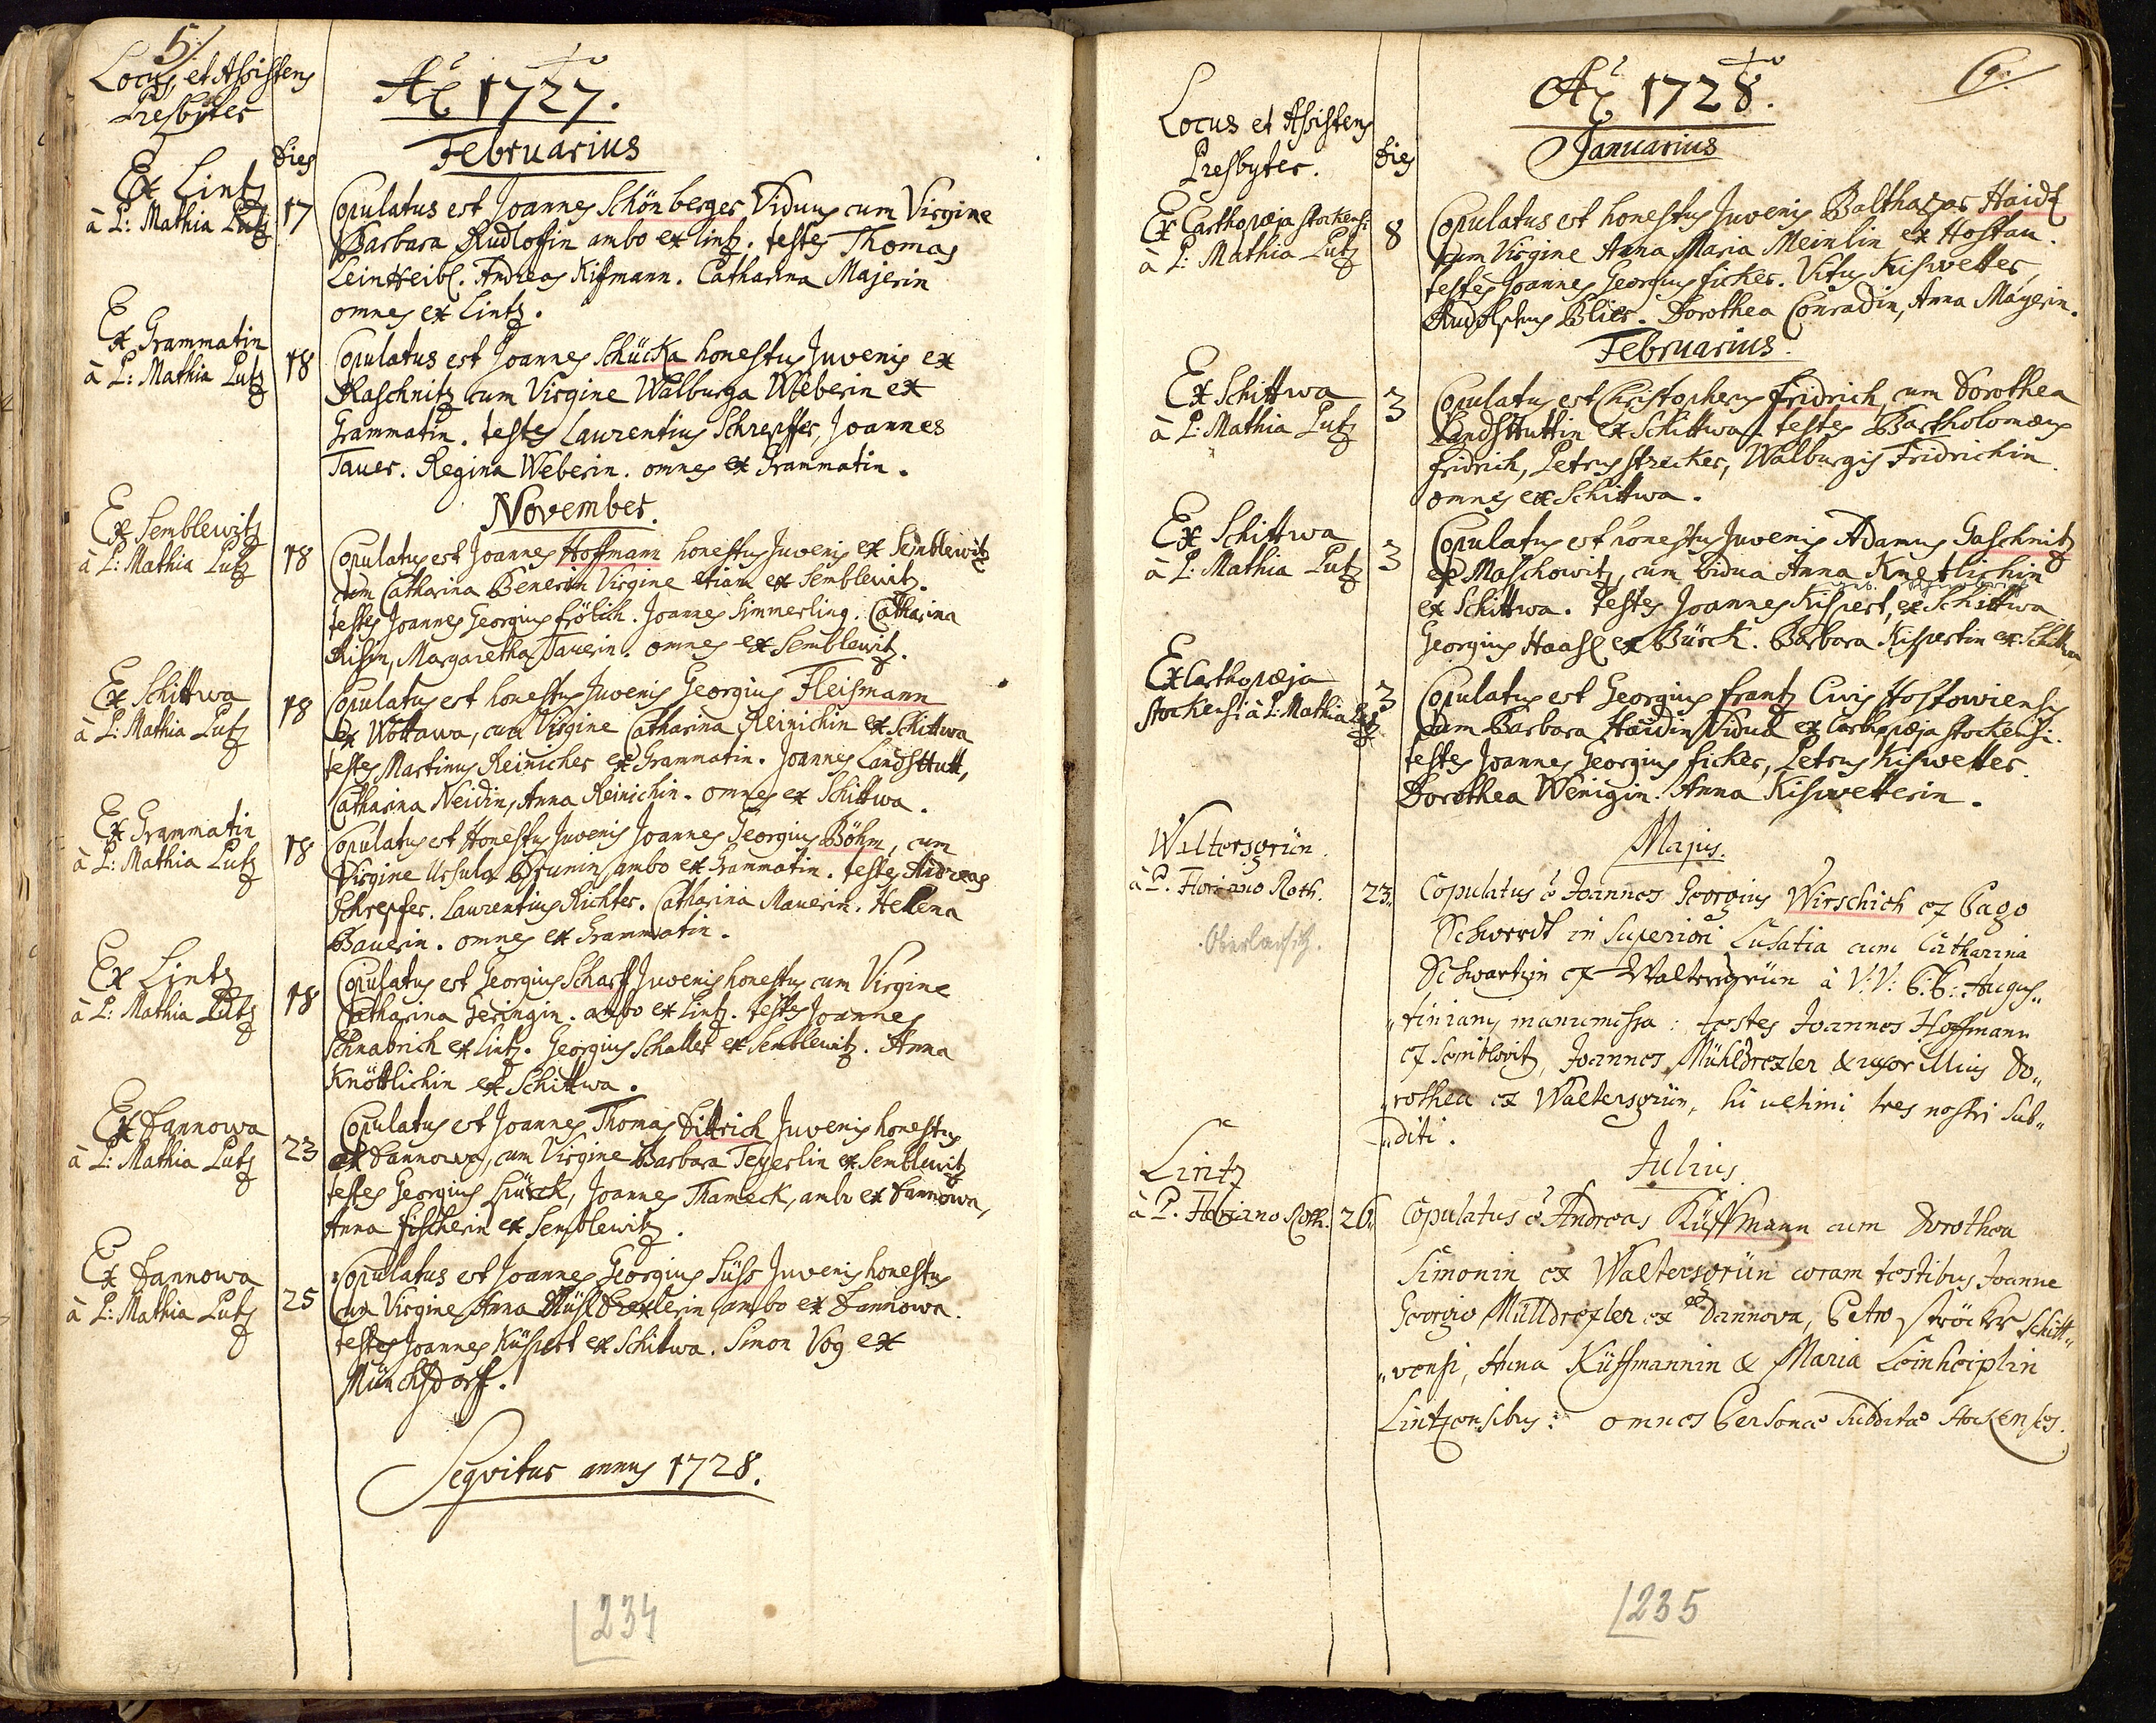 5/
Locus et Assistens
Presbyter
dies
Aõ 1727.
Februarius
Ex Lintz
à P: Mathia Lutz
17
Copulatus est Joannes Schönberger Viduus cum Virgine
Barbara Rudloffin ambo ex lintz. testes Thomas
Leinheibl. Andreas Kißmann. Catharina Majerin
omnes ex Lintz.
Ex Grammatin
à P: Mathia Lutz
18
Copulatus est Joannes Schücka honestus Juvenis ex
Raschnitz cum Virgine Walburga Weberin ex
Grammatin. testes Laurentius Schrepffer, Joannes
Tauer. Regina Weberin. omnes ex Grammatin.
November.
Ex Semblewitz
à P: Mathia Lutz
18
Copulatus est Joannes Hoffmann honestus Juvenis ex Semblewitz
cum Catharina Benerin Virgine etiam ex Semblewitz.
testes Joannes Georgius frölich. Joannes Simmerling. Catharina
Risin, Margaretha Tauerin. omnes ex Semblewitz.
Ex Schittwa
à P: Mathia Lutz
18
Copulatus est honestus Juvenis Georgius Fleismann
ex Wottawa, cum Virgine Catharina Reinichin ex Schittwa
testes Martinus Reinicher ex Grammatin. Joannes Landsttutt,
Catharina Neidin, Anna Reinichin. omnes ex Schittwa.
Ex Grammatin
à P: Mathia Lutz
18
Copulatus est Honestus Juvenis Joannes Georgius Böhm, cum
Virgine Ursula Brunin ambo ex Grammatin. testes Andreas
Schrepfer. Laurentius Richter. Catharina Mauerin. Helena
Bauerin. omnes ex Grammatin.
Ex Lintz
à P: Mathia Lutz
18
Copulatus est Georgius Scharff Juvenis honestus cum Virgine
Catharina Geringin. ambo ex Lintz. testes Joannes
Schnabrich ex Lintz. Georgius Schaller ex Semblewitz. Anna
Knöttlichin ex Schittwa.
Ex Dannowa
à P: Mathia Lutz
23
Copulatus est Joannes Thomas Dittrich Juvenis honestus
ex Dannowa, cum Virgine Barbara Teyerlin ex Semblewitz
testes Georgius Hürck, Joannes Thameck, ambo ex Dannowa,
Anna fischerin ex Semblewitz.
Ex Dannowa
à P: Mathia Lutz
25
Copulatus est Joannes Georgius Süss Juvenis honestus
cum Virgine Anna Mühldrexlerin ambo ex Dannowa.
testes Joannes Küspert ex Schittwa. Simon Vog ex
Münchsdorff.
Seqvitur annus 1728.
234
6.
Locus et Assistens
Presbyter.
dies
Aõ 1728.
Januarius
Ex Carthopœja stockensi
à P: Mathia Lutz
8
Copulatus est honestus Juvenis Balthasar Haidl
cum Virgine Anna Maria Meinlin ex Hostau.
testes Joannes Georgius ficker. Vitus Kiswetter,
Rudolphus Blier. Dorothea Conradin, Anna Mayerin.
Februarius.
Ex Schittwa
à P: Mathia Lutz
3
Copulatus est Christopherus fridrich cum Dorothea
Landsttuttin ex Schittwa. testes Bartholomæus
fridrich, Petrus strecker, Walburgis Fridrichin
omnes ex Schittwa.
Ex Schittwa
à P: Mathia Lutz
3
Copulatus est honestus Juvenis Adamus Gaschnitz
ex Maschowitz, cum vidua Anna Knetlichin
ex Schittwa. testes Joannes Kispert, ex Schittwa
Georgius Haasl ex Bürck. Barbara Kispertin ex Schittwa
Ex Carthopœja
stockensi à P: Mathia Lutz
3
Copulatus est Georgius frantz Civis Hostowiensis
cum Barbara Haidin Vidua ex Carthopœja stockensi.
testes Joannes Georgius ficker, Petrus Kiswetter.
Dorothea Wenigin. Anna Kiswetterin.
Majus.
Waltersgrün.
à P. Floriano Roth.
Oberlausitz.
23.
Copulatus ẽ Joannes Georgius Wirschich ex Pago
Schwerdt in superiori Lusatia cum Catharina
Schwartzin ex Waltersgrün à V: V: P. P: Augus„
„tinianis manumissa: testes Joannes Hoffmann
ex Semblovitz, Joannes Mühldrexler & uxor illius Do„
„rothea ex Waltersgrün, hi ultimi tres nostri sub„
„diti.
Julius.
Lintz
à P. Floriano Roth.
26.
Copulatus ẽ Andreas Küssmann cum Dorothea
Simonin ex Waltersgrün coram testibus Joanne
Georgio Mülldrexler ex Dannova, Petro ströcker Schitt„
„vensi, Anna Küssmannin & Maria Leinheiplin
Lintzensibus: omnes Personæ subditæ stockenses.
235